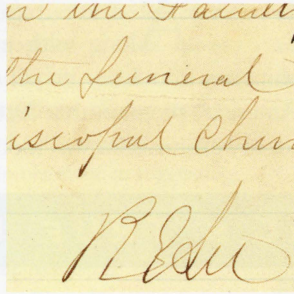 the Funeral
iscopal Chur
RELee